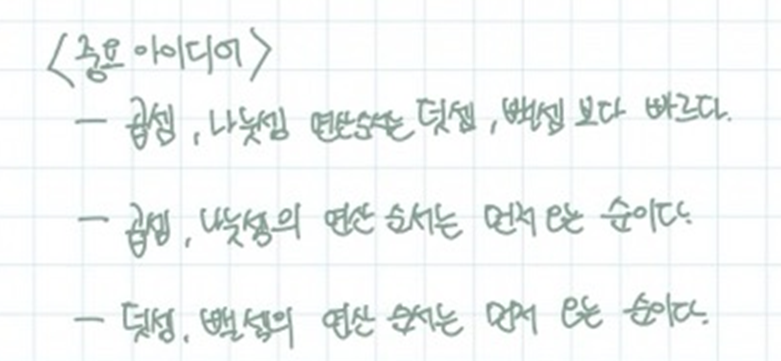 <중요 아이디어>
- 곱셈, 나눗셈 연산순서는 덧셈, 뺄셈 보다 빠르다.
- 곱셈, 나눗셈의 연산 순서는 먼저 오는 순이다.
- 덧셈, 뺄셈의 연산 순서는 먼저 오는 순이다.